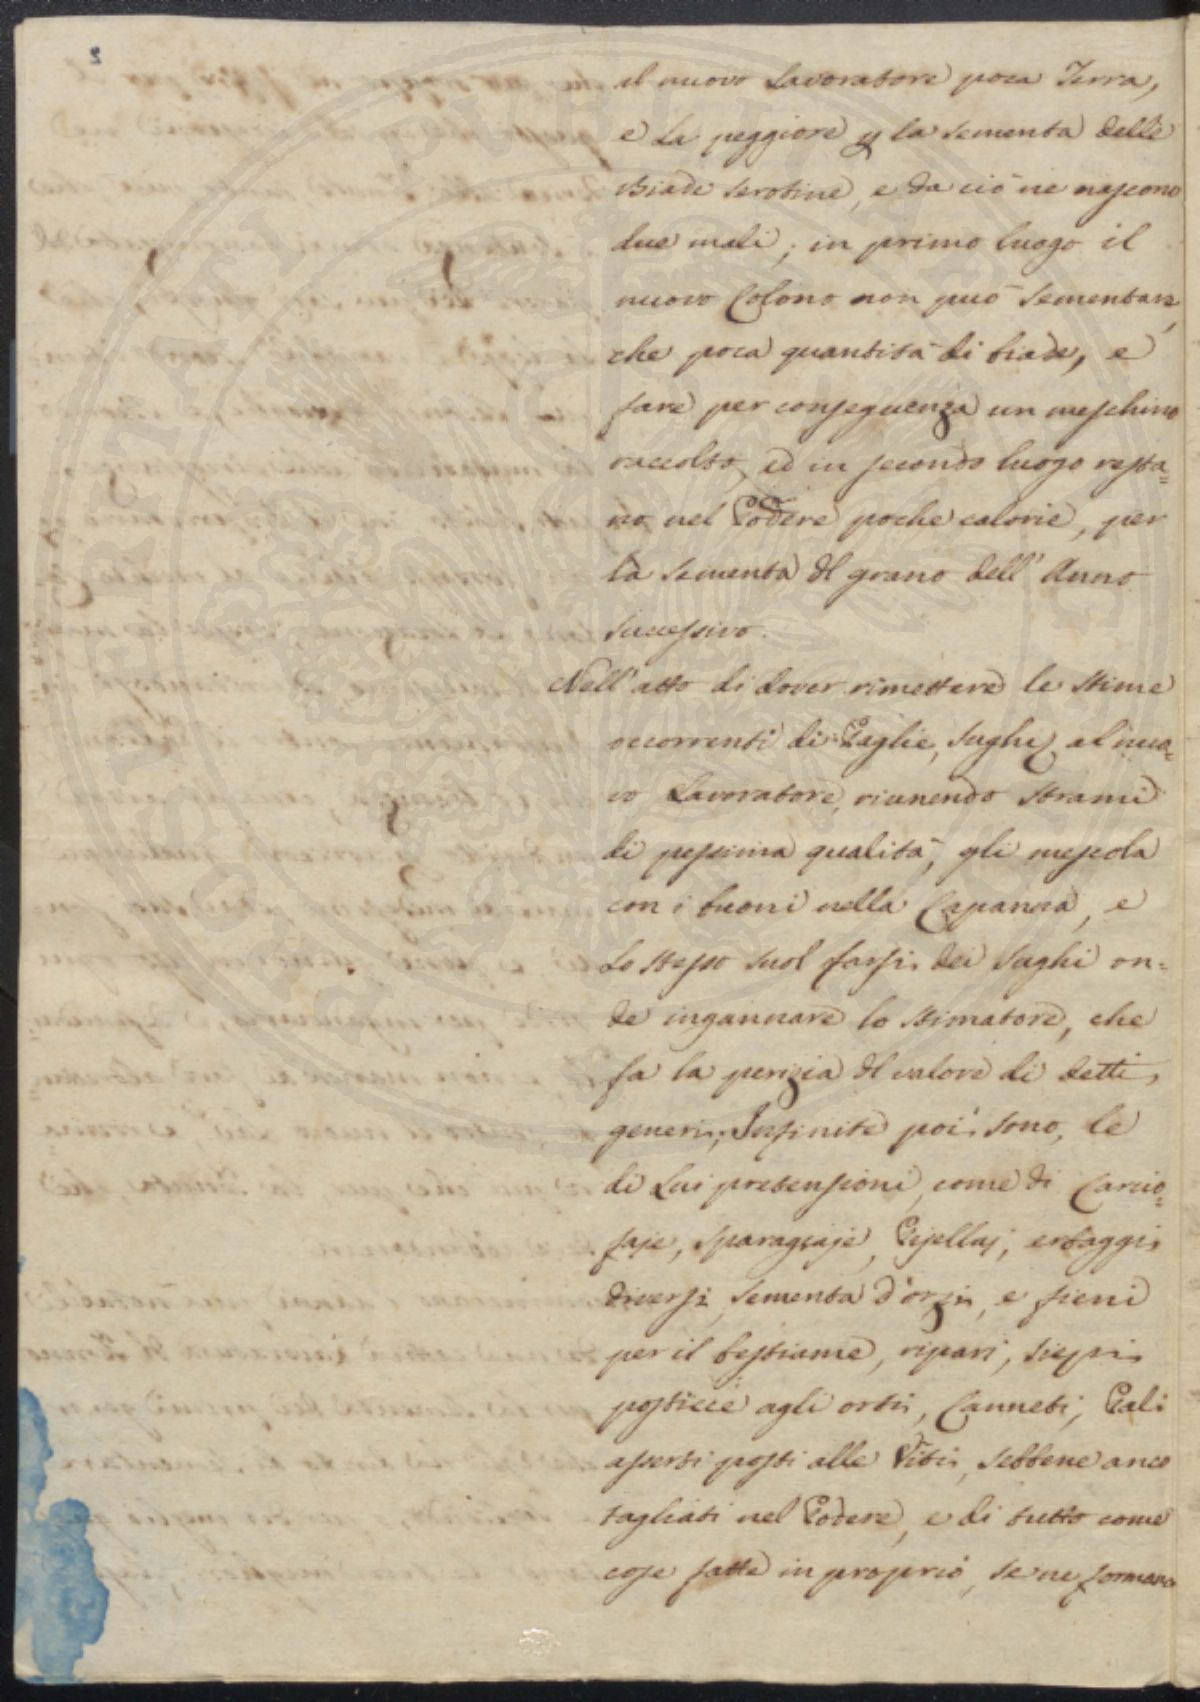 il nuovo Lavoratore poca Terra,
e La peggiore p la sementa delle
Biade serotine, e da ciò ne nascono
due mali; in primo luogo il
nuovo Colono non può sementare,
che poca quantità di biade, e
fare per conseguenza un meschino
raccolto, ed in secondo luogo resta=
no nel Podere poche calorie, per
la sementa dl grano dell' Anno
successivo.
Nell'atto di dover rimettere le stime
occorrenti di Paglie, sughi, al nuo=
vo Lavoratore, riunendo strami
di pessima qualità, gli mescola
con i buoni nella Capanna, e
Lo stesso suol farsi dei sughi on=
de ingannare lo stimatore, che
fa la perizia dl valore di detti
generi; Infinite poi sono, le
di Lui pretensioni, come di Carcio=
faje, sparagiaje, Pisellaj, erbaggi
diversi, sementa d'orzi, e fieni
per il bestiame, ripari, siepi
posticce agli orti, Canneti, Pali
asserti posti alle Viti, sebbene anco
tagliati nel Podere, e di tutto come
cose fatte in proprio, se ne formano